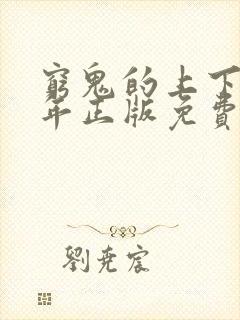 窮鬼的上下
年正版免費
劉堯宸